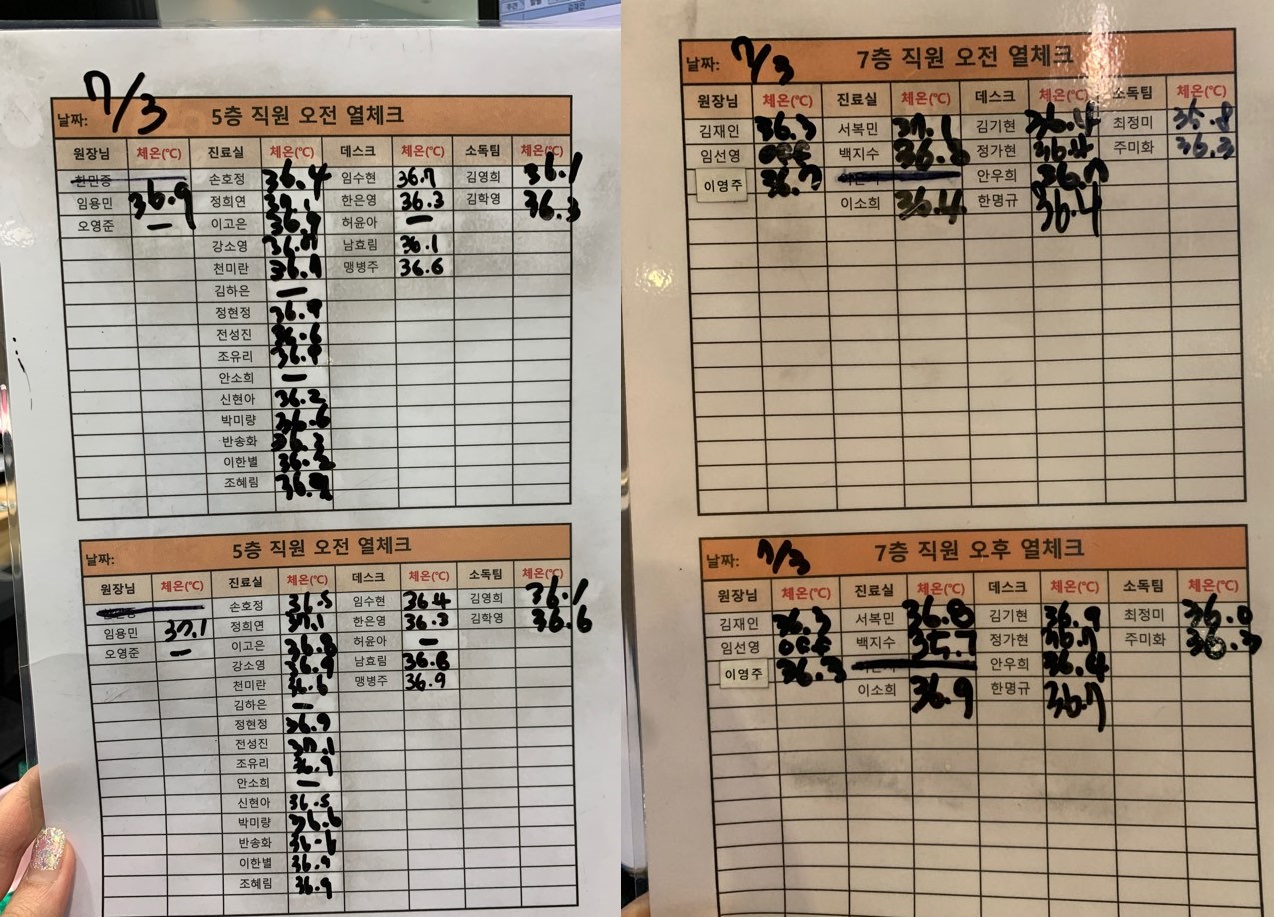 7/3
날짜: 5층 직원 오전 열체크
원장님 체온(℃) 진료실 체온(℃) 데스크 체온(℃) 소독팀 체온(℃)
한민증 손호정 36.4 임수현 36.7 김영희 36.1
임용민 36.9 정희연 37.1 한은영 36.3 김학영 36.3
오영준 — 이고은 36.9 허윤아 —
강소영 36.7 남효림 36.1
천미란 36.9 맹병주 36.6
김하은 —
정현정 36.9
전성진 36.6
조유리 36.9
안소희 —
신현아 36.2
박미량 36.6
반송화 36.3
이한별 36.2
조혜림
날짜: 5층 직원 오전 열체크
원장님 체온(℃) 진료실 체온(℃) 데스크 체온(℃) 소독팀 체온(℃)
손호정 36.5 임수현 36.4 김영희 36.1
임용민 37.1 정희연 37.1 한은영 36.3 김학영 36.6
오영준 — 이고은 36.8 허윤아 —
강소영 36.9 남효림 36.8
천미란 36.6 맹병주 36.9
김하은 —
정현정 36.9
전성진 37.1
조유리 36.9
안소희 —
신현아 36.5
박미량 36.6
반송화 36.6
이한별 36.9
조혜림 36.9
날짜: 7/3 7층 직원 오전 열체크
원장님 체온(℃) 진료실 체온(℃) 데스크 체온(℃) 소독팀 체온(℃)
김재인 36.3 서복민 37.1 김기현 36.4 최정미 35.8
임선영 off 백지수 36.8 정가현 36.4 주미화 36.3
이영주 36.7 안우희 36.7
이소희 36.4 한명규 36.4
날짜: 7/3 7층 직원 오후 열체크
원장님 체온(℃) 진료실 체온(℃) 데스크 체온(℃) 소독팀 체온(℃)
김재인 36.3 서복민 36.8 김기현 36.9 최정미 36.0
임선영 off 백지수 35.7 정가현 36.7 주미화 36.3
이영주 36.3 안우희 36.4
이소희 36.9 한명규 36.7